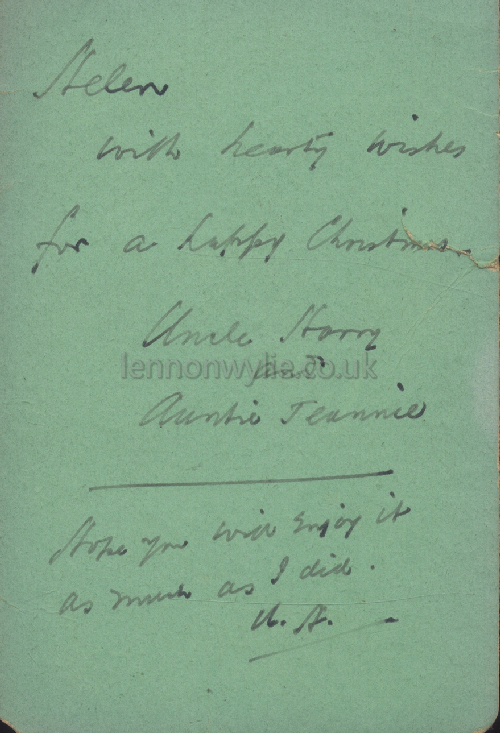 Helen
with hearty wishes
for a happy Christmas.
Uncle Harry
and
lennonwylie.co.uk
Auntie Jeannie
Hope you will enjoy it
as much as I did.
U. H.